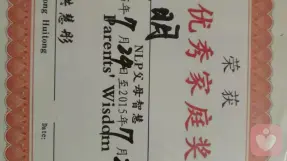 荣获
优秀家庭奖
NLP父母智慧
年7月24日至2015年7月2
Parents' Wisdom
慧彤
ong Huitong
Date: